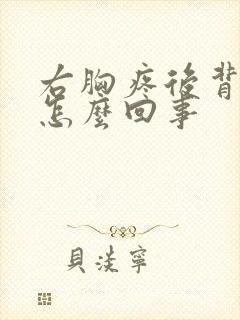 右胸疼後背
怎麼回事
貝淡寧